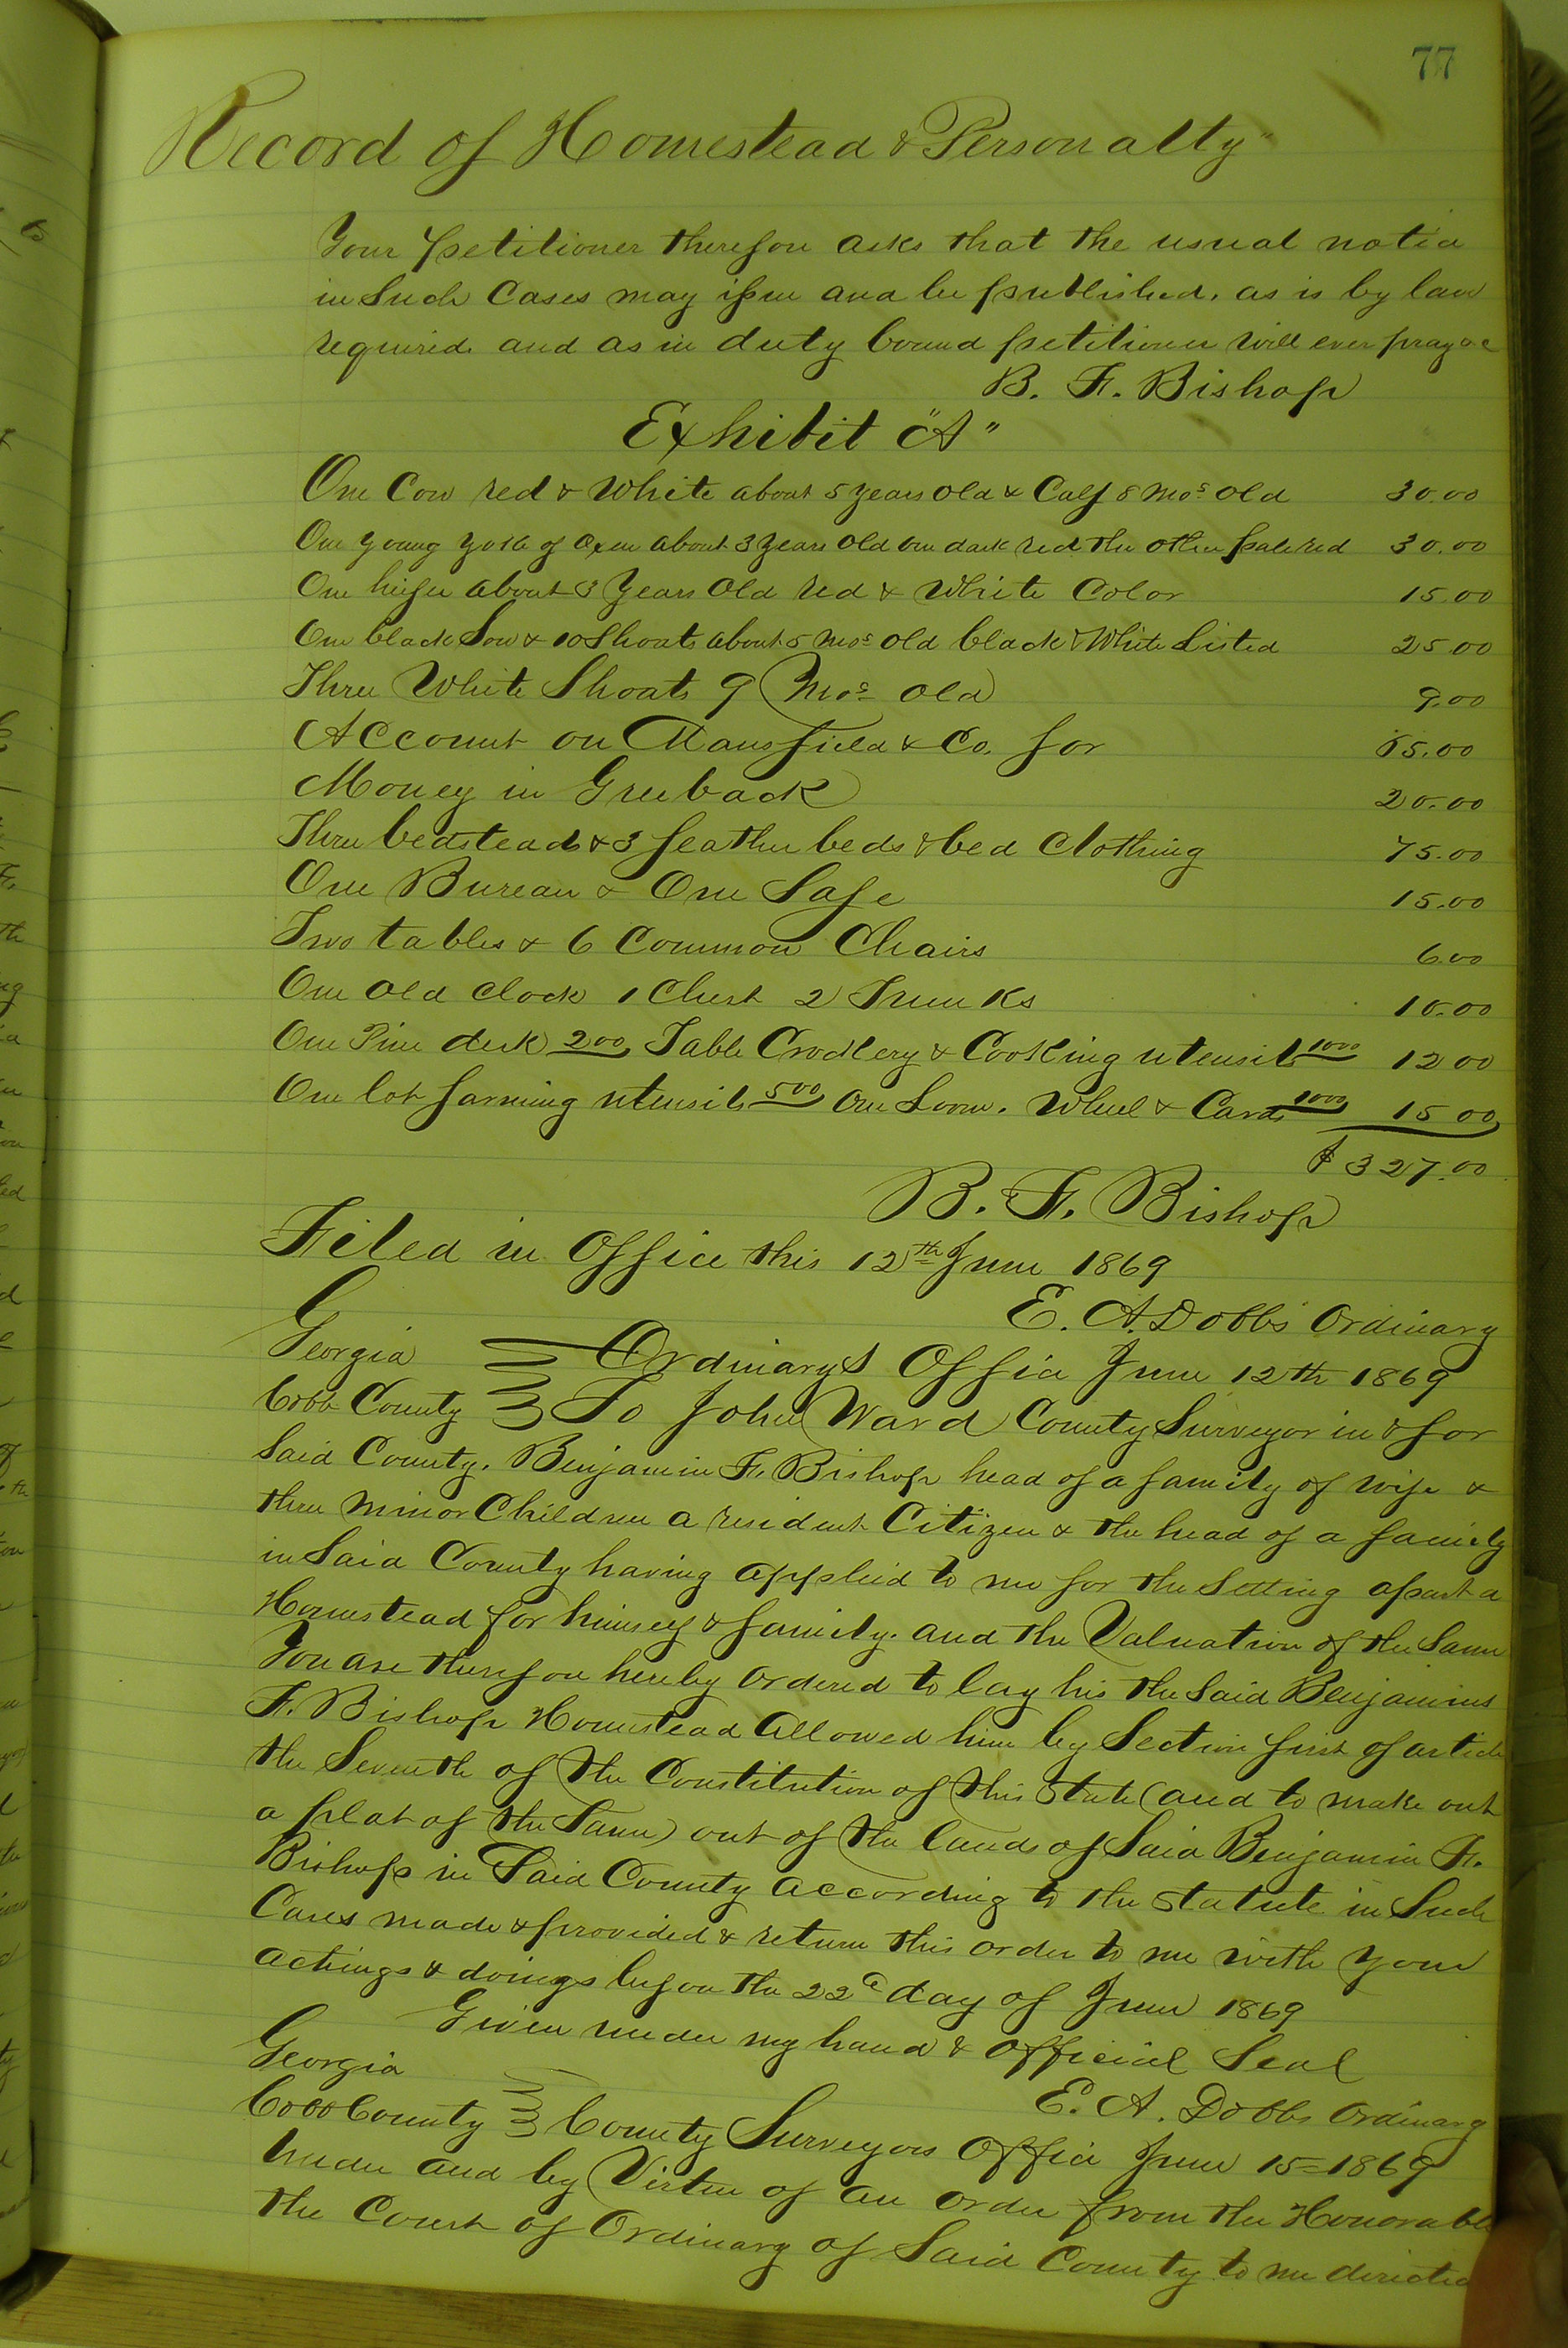 77
Record of Homestead & Personalty"
Your petitioner therefore asks that the usual notice
in Such Cases may issue and be published, as is by law
required. and as in duty bound petitioner will ever pray &c
B. F. Bishop
Exhibit "A"
One Cow red & White about 5 years old & Calf 8 mos old 30.00
One young yoke of Oxen about 3 years old one dark red the other pale red 30.00
One heifer about 3 Years old red & White Color 15.00
One black Sow & 10 Shoats about 5 mos old black & White Listed 25.00
Three White Shoats 9 Mos old 9.00
Account on Mansfield & Co. for 65.00
Money in Greenback 20.00
Three bedsteads & 3 feather beds & bed Clothing 75.00
One Bureau & One Safe 15.00
Two tables & 6 Common Chairs 6.00
One old clock 1 Chest 2 Trunks 10.00
One Pine desk 2 00 Table Crockery & Cooking utensils 10 00 12 00
One lot farming utensils 5 00 One Loom. Wheel & Cards 10 00 15 00
$ 327.00
B. F. Bishop
Filed in Office this 12th June 1869
E. A. Dobbs Ordinary
Georgia Ordinarys Office June 12th 1869
Cobb County To John Ward County Surveyor in & for
Said County. Benjamin F. Bishop head of a family of wife &
three minor Children a resident Citizen & the head of a family
in Said County having applied to me for the Setting apart a
Homestead for himself & family. and the Valuation of the Same
You are therefore hereby ordered to lay his the Said Benjamins
F. Bishop Homestead Allowed him by Section first of article
the Seventh of the Constitution of this State (and to make out
a plat of the Same) out of the lands of Said Benjamin F.
Bishop in Said County according to the Statute in Such
Cases made & provided & return this order to me with your
actings & doings before the 22d day of June 1869
Given under my hand & official Seal
E. A. Dobbs Ordinary
Georgia
Cobb County County Surveyors Office June 15=1869
Under and by Virtue of an order from the Honorable
the Court of Ordinary of Said County to me directed